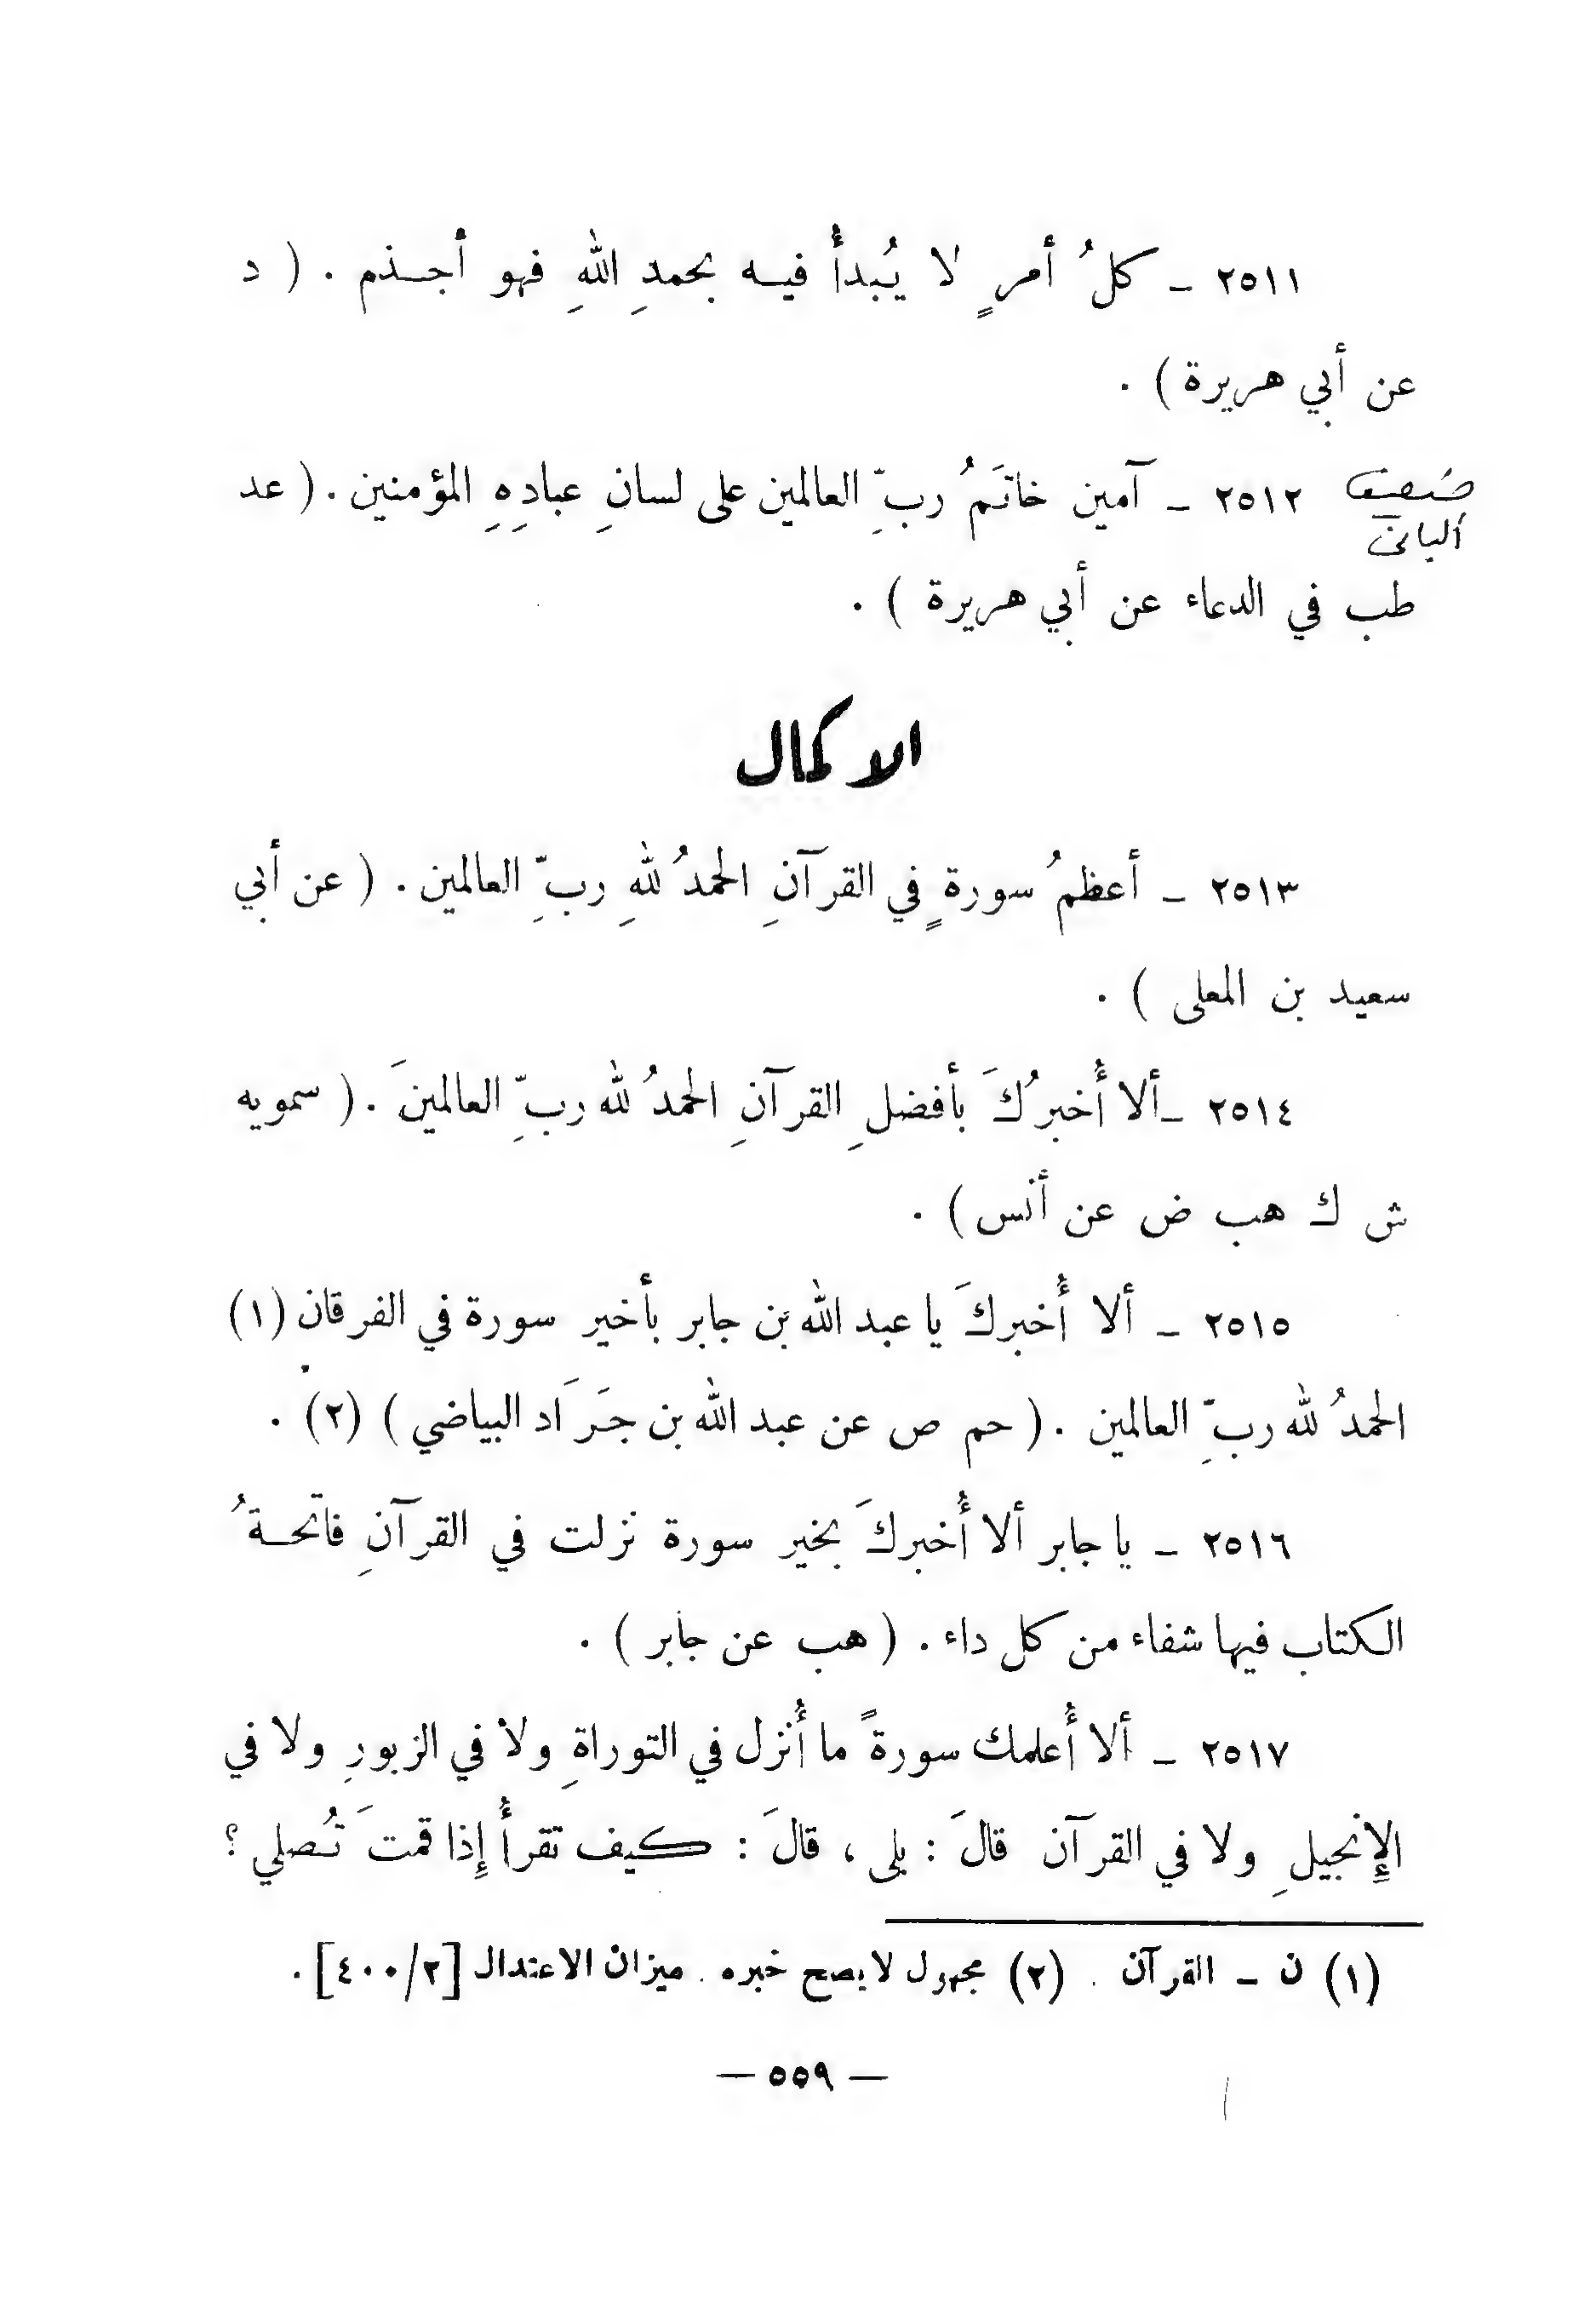 ٢٥١١ ـ كلُ أمرٍ لا يُبدأُ فيـه بحمدِ اللهِ فهو أجـذم . ( د
عن أبي هريرة ) .
ضعيف ٢٥١٢ ـ آمين خاتَمُ ربِّ العالمين على لسانِ عبادِهِ المؤمنين . ( عد
ألباني
طب في الدعاء عن أبي هريرة ) .
الاكمال
٢٥١٣ ـ أعظمُ سورةٍ في القرآنِ الحمدُ للهِ ربِّ العالمين . ( عن أبي
سعيد بن المعلى ) .
٢٥١٤ ـ ألا أُخبرُكَ بأفضلِ القرآنِ الحمدُ لله ربِّ العالمينَ . ( سمويه
ش ك هب ض عن أنس ) .
٢٥١٥ ـ ألا أُخبركَ يا عبد الله بن جابر بأخير سورة في الفرقان (١)
الحمدُ لله ربِّ العالمين . ( حم ص عن عبد الله بن جَرَاد البياضي ) (٢) .
٢٥١٦ ـ يا جابر ألا أُخبركَ بخير سورة نزلت في القرآنِ فاتحـةُ
الكتاب فيها شفاء من كل داء . ( هب عن جابر ) .
٢٥١٧ ـ ألا أُعلمك سورةً ما أُنزل في التوراةِ ولا في الزبورِ ولا في
الإنجيلِ ولا في القرآن قالَ : بلى ، قالَ : كيف تقرأُ إذا قمتَ تُصلي ؟
(١) ن ـ القرآن . (٢) مجهول لا يصح خبره . ميزان الاعتدال [٤٠٠/٢] .
— ٥٥٩ —